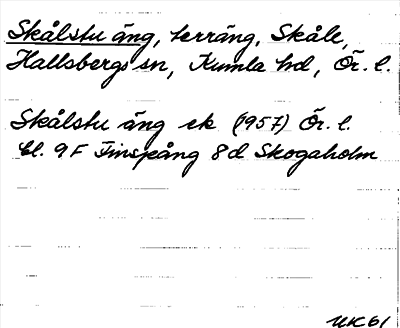 Skålstu äng, terräng, Skåle,
Hallsbergs sn, Kumla hd, Ör. l.
Skålstu äng ek (1957) Ör. l.
bl. 9F Finspång 8d Skogaholm
UK 61